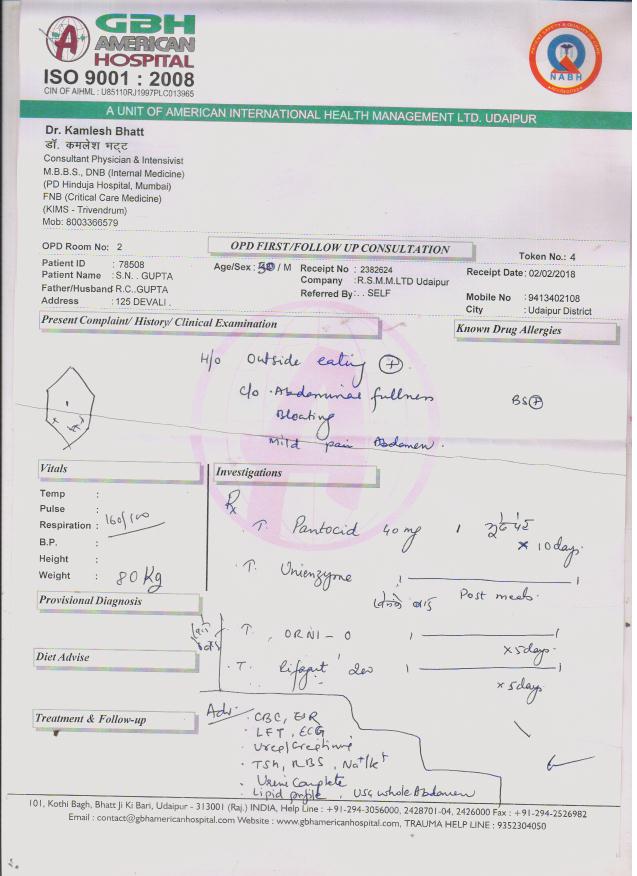 GBH
AMERICAN
HOSPITAL
ISO 9001 : 2008
CIN OF AIHML : U85110RJ1997PLC013965
NABH
A UNIT OF AMERICAN INTERNATIONAL HEALTH MANAGEMENT LTD. UDAIPUR
Dr. Kamlesh Bhatt
डॉ. कमलेश भट्ट
Consultant Physician & Intensivist
M.B.B.S., DNB (Internal Medicine)
(PD Hinduja Hospital, Mumbai)
FNB (Critical Care Medicine)
(KIMS - Trivendrum)
Mob: 8003366579
OPD Room No: 2
OPD FIRST/FOLLOW UP CONSULTATION
Token No.: 4
Patient ID : 78508
Age/Sex : / M
Receipt No : 2382624
Receipt Date: 02/02/2018
Patient Name : S.N. . GUPTA
Company : R.S.M.M.LTD Udaipur
Father/Husband R.C..GUPTA
Referred By: . . SELF
Mobile No : 9413402108
Address : 125 DEVALI .
City : Udaipur District
Present Complaint/ History/ Clinical Examination
Known Drug Allergies
H/o Outside eating (+)
C/o . Abdominal fullness
BS(+)
Bloating
Mild pain Abdomen.
Vitals
Investigations
Temp :
Pulse :
Respiration : 160/100
B.P. :
Height :
Weight : 80 Kg
Rx
T. Pantocid 40 mg 1
x 10 days.
T. Unienzyme 1 — 1
Post meals.
Provisional Diagnosis
T. ORNI - O 1 — 1
x 5 days.
Diet Advise
. T. 1 — 1
x 5 days
Treatment & Follow-up
Adv.
. CBC, ESR
. LFT, ECG
. Urea/Creatinine
. TSH, RBS, Na+/K+
. Urine Complete
. Lipid profile , USG whole Abdomen
101, Kothi Bagh, Bhatt Ji Ki Bari, Udaipur - 313001 (Raj.) INDIA, Help Line : +91-294-3056000, 2428701-04, 2426000 Fax : +91-294-2526982
Email : contact@gbhamericanhospital.com Website : www.gbhamericanhospital.com, TRAUMA HELP LINE : 9352304050